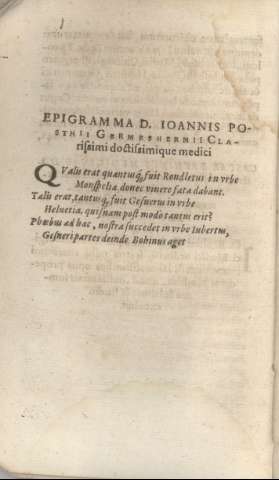 EPIGRAMMA D. IOANNIS PO-
STHII GERMERSHEMII CLA-
rissimi doctissimique medici
QValis erat quantusq; fuit Rondletus in vrbe
Monspelia, donec vivere fata dabant.
Talis erat, tantusq; fuit Gesnerus in vrbe
Helvetia, quisnam post modo tantus erit?
Phœbus ad hæc, nostra succedet in vrbe Iubertus,
Gesneri partes deinde Bohinus aget